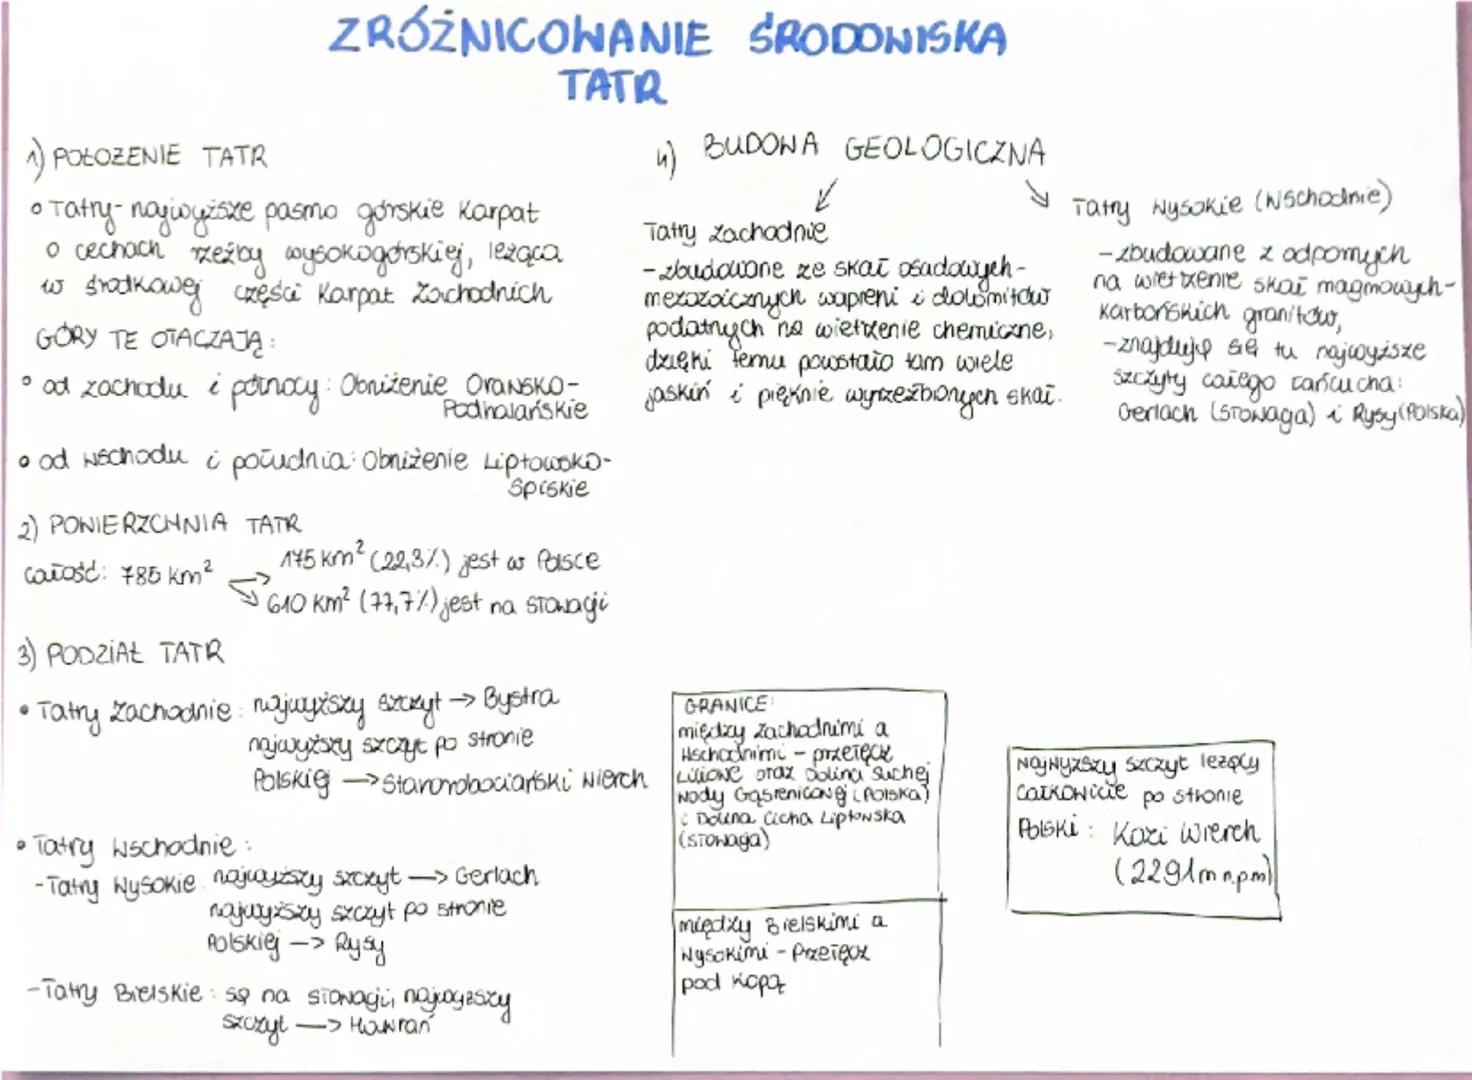 ZRÓŻNICOWANIE ŚRODOWISKA
TATR
1) POŁOŻENIE TATR
• Tatry - najwyższe pasmo górskie Karpat
o cechach rzeźby wysokogórskiej, leżąca
w środkowej części Karpat Zachodnich
GÓRY TE OTACZAJĄ:
• od zachodu i północy: Obniżenie Orawsko-
Podhalańskie
• od wschodu i południa: Obniżenie Liptowsko-
Spiskie
2) POWIERZCHNIA TATR
całość: 785 km² → 175 km² (22,3%) jest w Polsce
→ 610 km² (77,7%) jest na Słowacji
3) PODZIAŁ TATR
• Tatry Zachodnie: najwyższy szczyt → Bystra
najwyższy szczyt po stronie
Polskiej → Starorobociański Wierch
• Tatry Wschodnie:
- Tatry Wysokie: najwyższy szczyt → Gerlach
najwyższy szczyt po stronie
Polskiej → Rysy
- Tatry Bielskie: są na Słowacji, najwyższy
szczyt → Hawrań
4) BUDOWA GEOLOGICZNA
Tatry Zachodnie
- zbudowane ze skał osadowych -
mezozoicznych wapieni i dolomitów
podatnych na wietrzenie chemiczne,
dzięki temu powstało tam wiele
jaskiń i pięknie wyrzeźbionych skał.
Tatry Wysokie (Wschodnie)
- zbudowane z odpornych
na wietrzenie skał magmowych -
karbońskich granitów,
- znajdują się tu najwyższe
szczyty całego łańcucha:
Gerlach (Słowacja) i Rysy (Polska)
GRANICE:
między Zachodnimi a
Wschodnimi - przełęcz
Liliowe oraz Dolina Suchej
Wody Gąsienicowej (Polska)
i Dolina Cicha Liptowska
(Słowacja)
między Bielskimi a
Wysokimi - Przełęcz
pod Kopą
Najwyższy szczyt leżący
całkowicie po stronie
Polski: Kozi Wierch
(2291 m n.p.m)